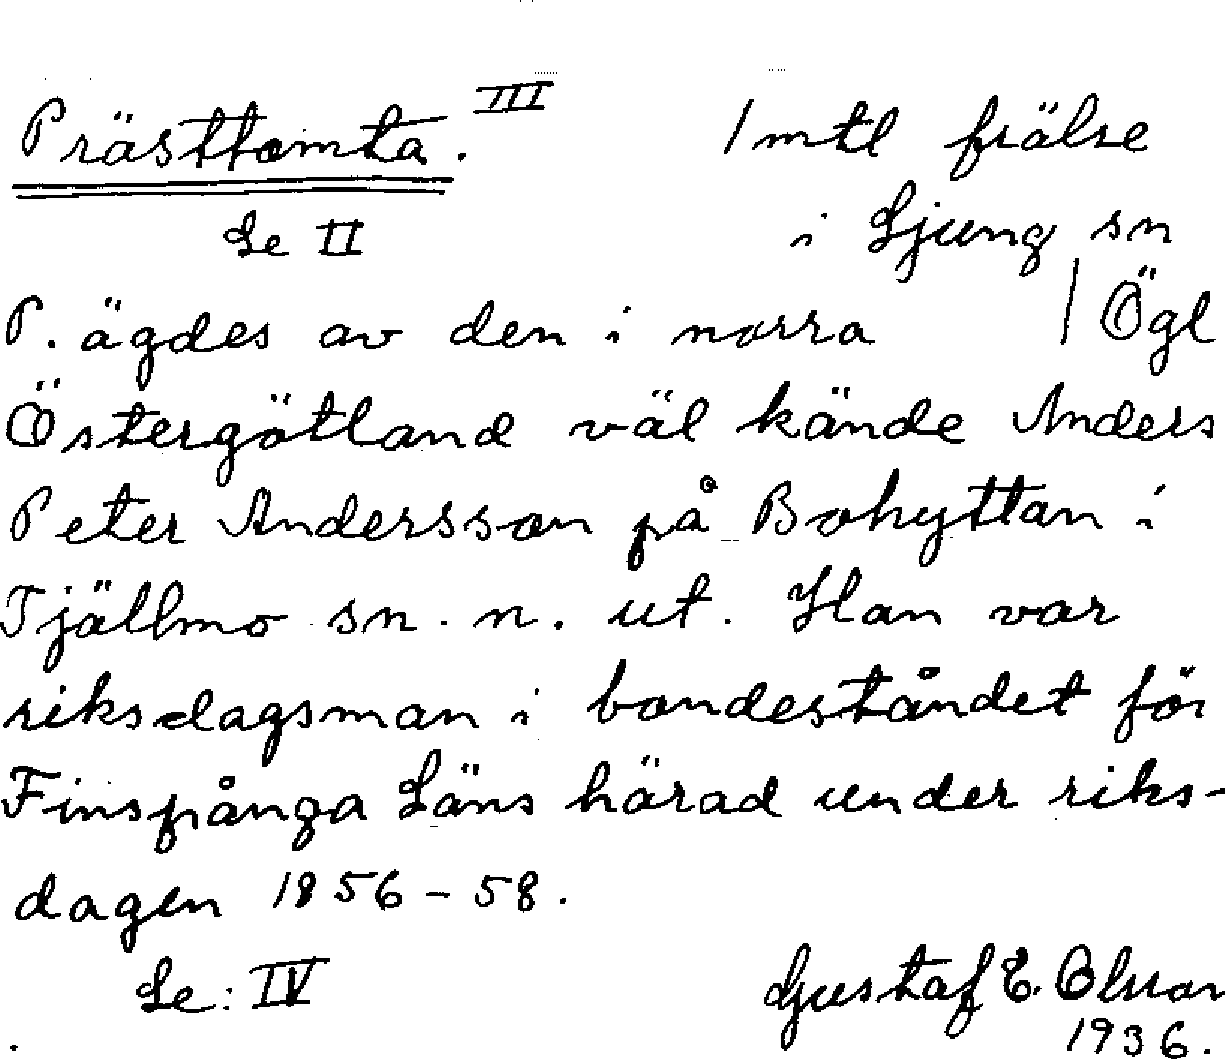 Prästtomta. III
1 mtl frälse
Se II
i Ljung sn
P. ägdes av den i norra
/ Ögl
Östergötland väl kände Anders
Peter Andersson på Bohyttan i
Tjällmo sn. n. ut. Han var
riksdagsman i bondeståndet för
Finspånga Läns härad under riks-
dagen 1856-58.
Se: IV
Gustaf E. Olsson
1936.